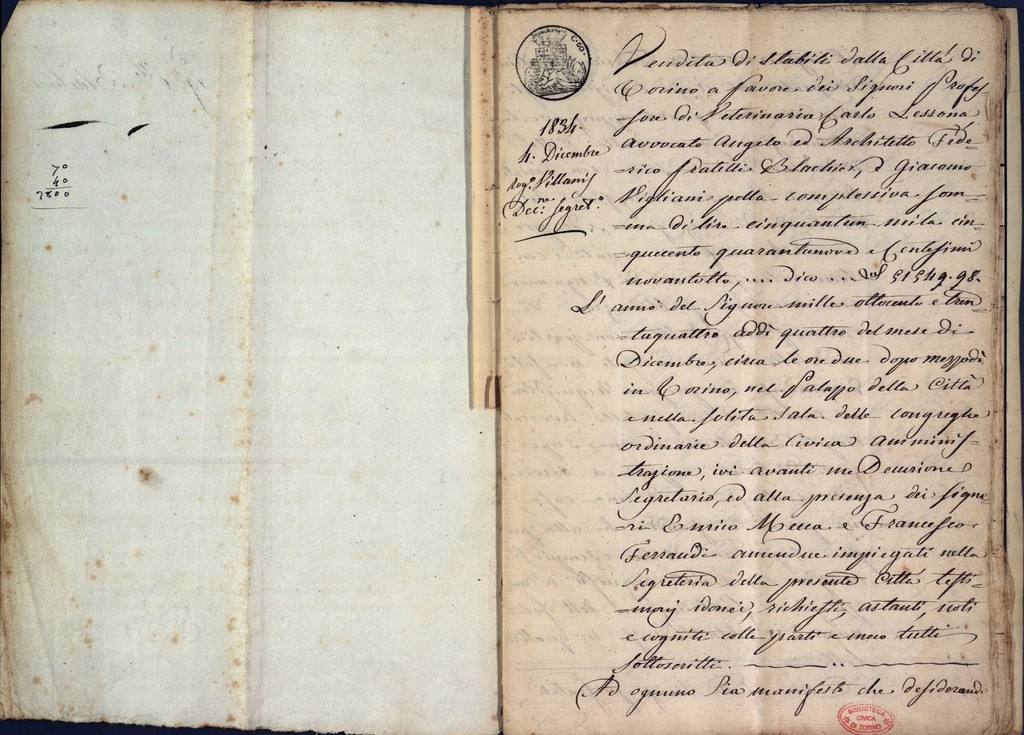 70
40
2800
C. 60.
1834.
4. Dicembre
Rog.° Villanis
Dec.ne Segret.°
Vendita di stabili dalla Città di
Torino a favore dei Signori Profes-
sore di Veterinaria Carlo Lessona
avvocato Angelo ed Architetto Fede-
rico fratelli Blachier, e Giacomo
Vigliani pella complessiva som-
ma di lire cinquantun mila cin-
quecento quarantanove e Centesimi
novantotto, .... dico ... 51549. 98.
L'anno del Signore mille ottocento e tren-
taquattro addì quattro del mese di
Dicembre, circa le ore due dopo mezzodì
in Torino, nel Palazzo della Città
e nella solita sala delle congreghe
ordinarie della Civica amminis-
trazione, ivi avanti me Decurione
Segretario, ed alla presenza dei signo-
ri Enrico Mecca e Francesco
Ferraudi amendue impiegati nella
Segreteria della presente Città testi-
monj idonei, richiesti, astanti, noti
e cogniti colle parti e meco tutti
sottoscritti.
Ad ognuno sia manifesto che desiderando
BIBLIOTECA
CIVICA
DI TORINO